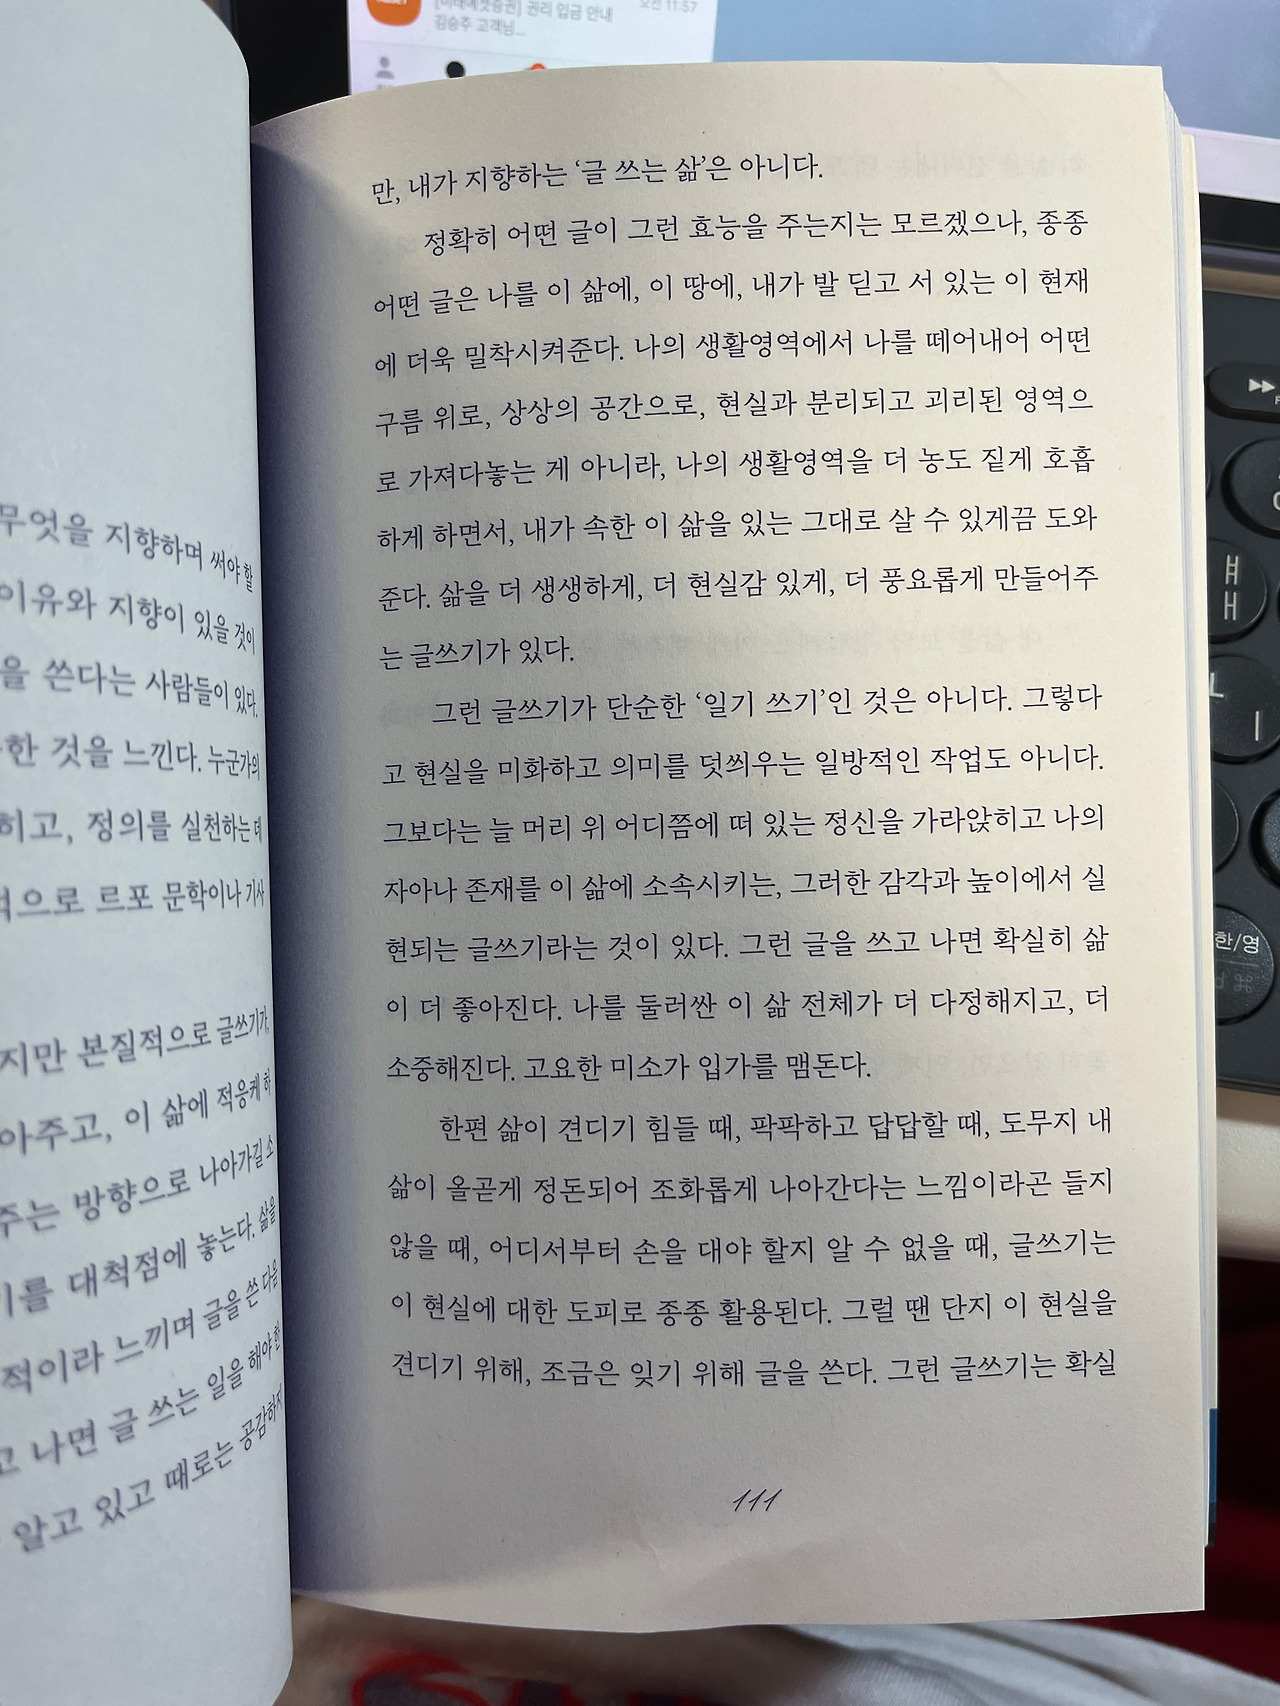 [미래에셋증권] 권리 입금 안내
오전 11:57
김승주 고객님...
무엇을 지향하며 써야 할
이유와 지향이 있을 것이
을 쓴다는 사람들이 있다.
한 것을 느낀다. 누군가의
히고, 정의를 실천하는 데
적으로 르포 문학이나 기사
지만 본질적으로 글쓰기가,
아주고, 이 삶에 적응케 하
주는 방향으로 나아가길 소
기를 대척점에 놓는다. 삶을
적이라 느끼며 글을 쓴 다음
고 나면 글 쓰는 일을 해야 한
알고 있고 때로는 공감하지
만, 내가 지향하는 ‘글 쓰는 삶’은 아니다.
정확히 어떤 글이 그런 효능을 주는지는 모르겠으나, 종종
어떤 글은 나를 이 삶에, 이 땅에, 내가 발 딛고 서 있는 이 현재
에 더욱 밀착시켜준다. 나의 생활영역에서 나를 떼어내어 어떤
구름 위로, 상상의 공간으로, 현실과 분리되고 괴리된 영역으
로 가져다놓는 게 아니라, 나의 생활영역을 더 농도 짙게 호흡
하게 하면서, 내가 속한 이 삶을 있는 그대로 살 수 있게끔 도와
준다. 삶을 더 생생하게, 더 현실감 있게, 더 풍요롭게 만들어주
는 글쓰기가 있다.
그런 글쓰기가 단순한 ‘일기 쓰기’인 것은 아니다. 그렇다
고 현실을 미화하고 의미를 덧씌우는 일방적인 작업도 아니다.
그보다는 늘 머리 위 어디쯤에 떠 있는 정신을 가라앉히고 나의
자아나 존재를 이 삶에 소속시키는, 그러한 감각과 높이에서 실
현되는 글쓰기라는 것이 있다. 그런 글을 쓰고 나면 확실히 삶
이 더 좋아진다. 나를 둘러싼 이 삶 전체가 더 다정해지고, 더
소중해진다. 고요한 미소가 입가를 맴돈다.
한편 삶이 견디기 힘들 때, 팍팍하고 답답할 때, 도무지 내
삶이 올곧게 정돈되어 조화롭게 나아간다는 느낌이라곤 들지
않을 때, 어디서부터 손을 대야 할지 알 수 없을 때, 글쓰기는
이 현실에 대한 도피로 종종 활용된다. 그럴 땐 단지 이 현실을
견디기 위해, 조금은 잊기 위해 글을 쓴다. 그런 글쓰기는 확실
111
ㅐ
H
L
ㅣ
한/영